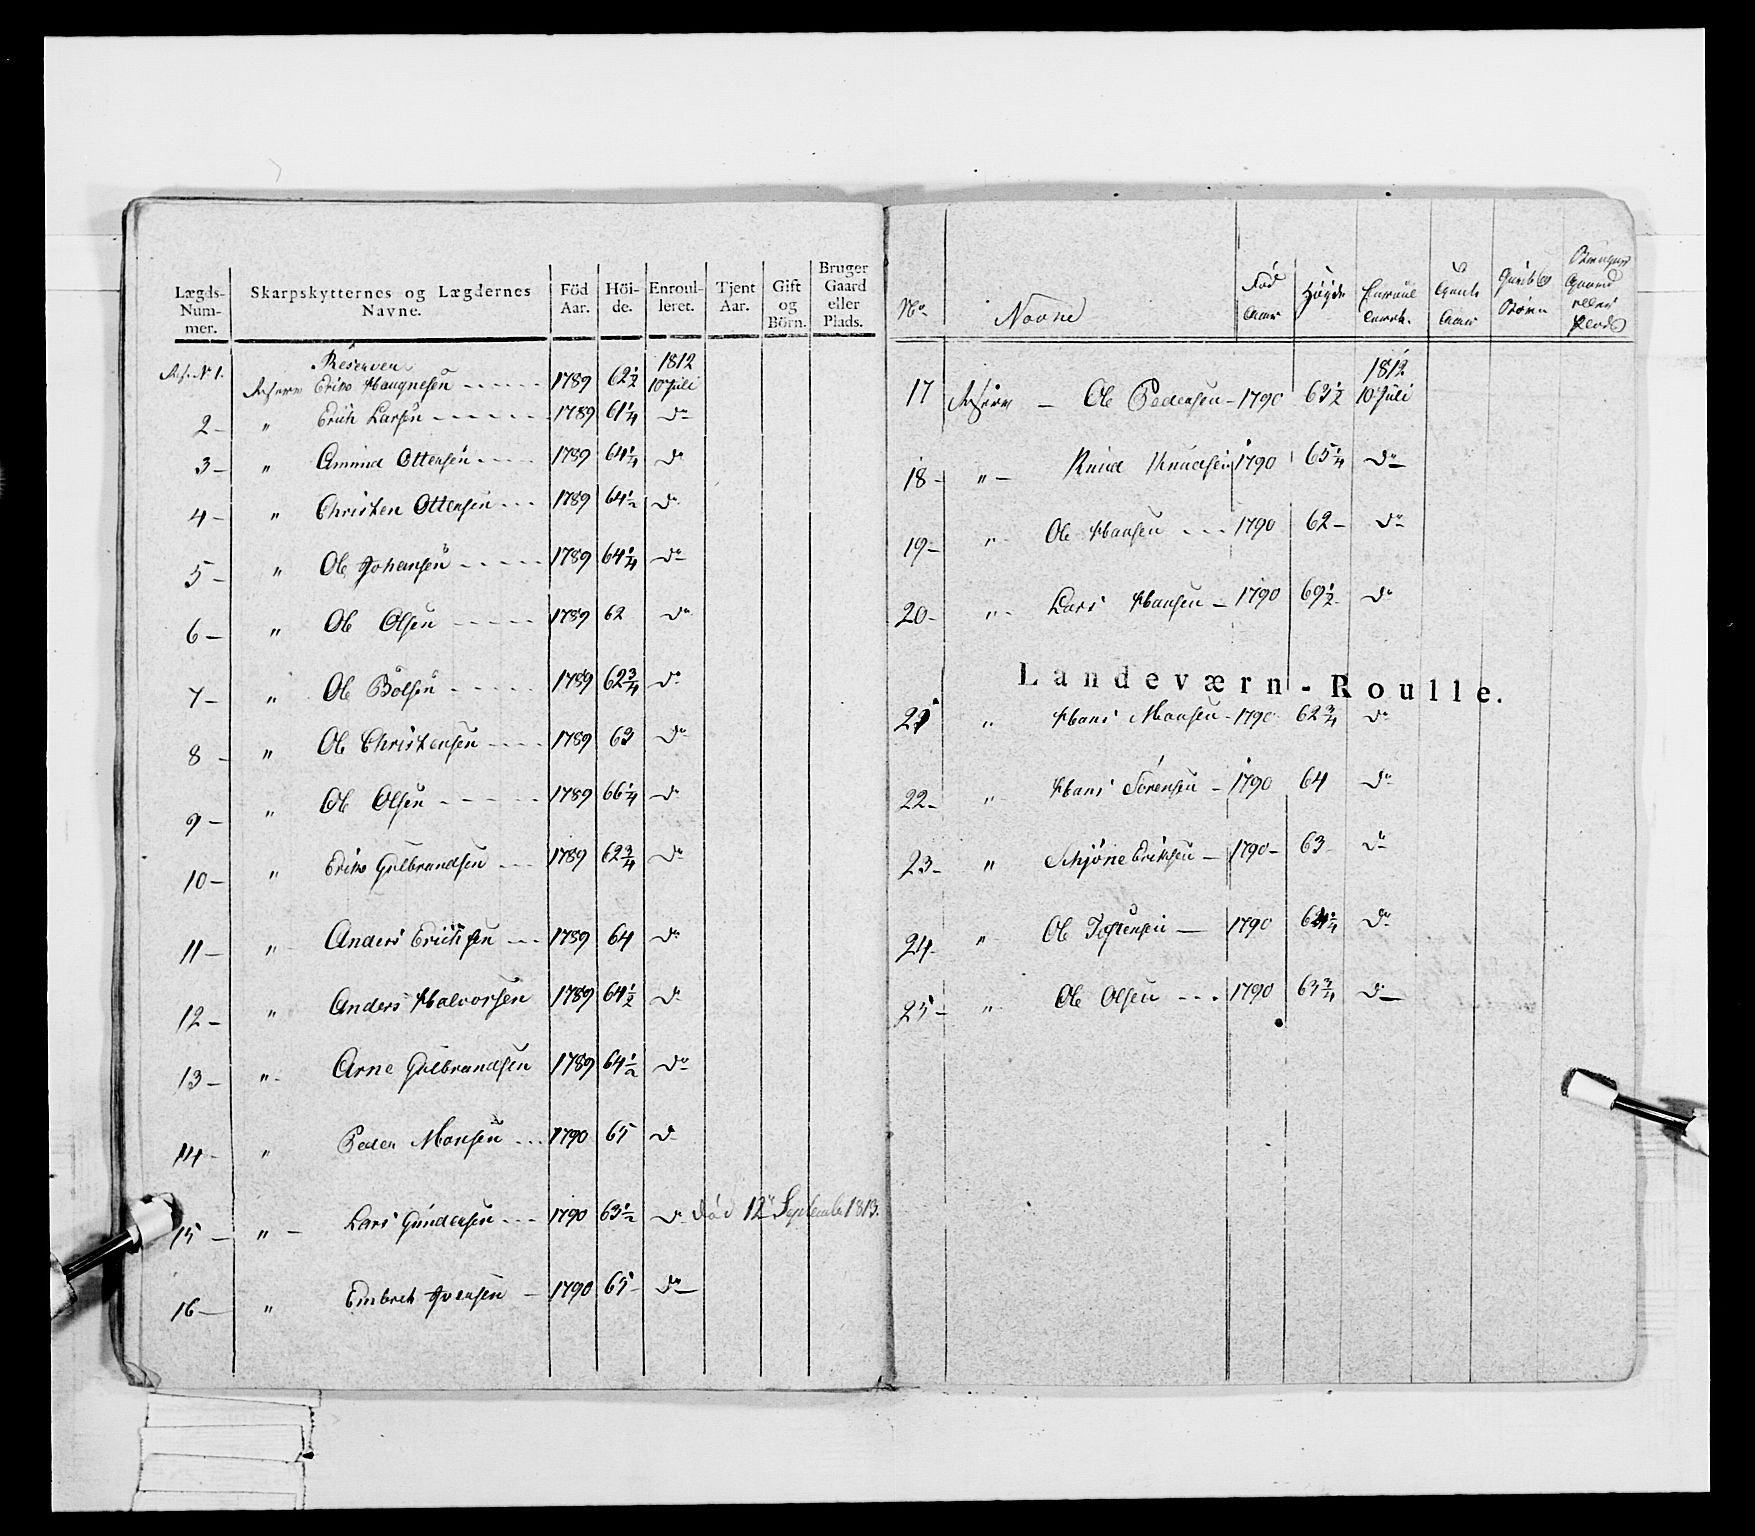 Lægds-Num-mer. Skarpskytternes og Lægdernes Navne. Föd Aar. Höi-de. Enroul-leret. Tjent Aar. Gift og Börn. Bruger Gaard eller Plads.
Reserven 1812
Res. No 1. Reserve Erik Haagnesen 1789 62 1/2 10 Juli
2 " Erich Larsen 1789 61 1/4 Do
3 " Amund Ottersen 1789 64 1/4 Do
4 " Christen Ottersen 1789 64 1/2 Do
5 " Ole Johansen 1789 64 1/4 Do
6 " Ole Olsen 1789 62 Do
7 " Ole Bolsen 1789 62 3/4 Do
8 " Ole Christensen 1789 63 Do
9 " Ole Olsen 1789 66 1/4 Do
10 " Erik Gulbrandsen 1789 62 3/4 Do
11 " Anders Erichsen 1789 64 Do
12 " Anders Halvorsen 1789 64 1/2 Do
13 " Arne Gulbrandsen 1789 64 1/2 Do
14 " Peder Monsen 1790 65 Do
15 " Lars Gundersen 1790 63 1/2 Do Död 12te September 1813.
16 " Embret Iversen 1790 65 Do
No. Navne Föd Aar Høyde Enroul leret. Tient Aar Givt og Börn Bruger Gaard eller Plads
1812
17 Reserve Ole Pedersen 1790 63 1/2 10 Juli
18 " Knud Knudsen 1790 65 1/4 Do
19 " Ole Hansen 1790 62 Do
20 " Lars Hansen 1790 69 1/2 Do
Landeværn-Roulle.
21 " Hans Monsen 1790 62 3/4 Do
22 " Hans Sörensen 1790 64 Do
23 " Schjöne Eriksen 1790 63 Do
24 " Ole 1790 Do
25 " Ole Olsen 1790 63 3/4 Do